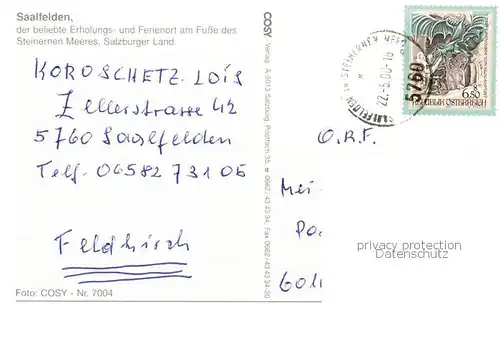 Saalfelden,
der beliebte Erholungs- und Ferienort am Fuße des
Steinernen Meeres, Salzburger Land.
KOROSCHETZ LOIS
Zellerstrasse 42
5760 Saalfelden
Telf. 06582 73105
Feldkirch
Foto: COSY - Nr. 7004
COSY Verlag A-5013 Salzburg, Postfach 35, 0662/43 43 34, Fax 0662/43 43 34-20
SAALFELDEN AM STEINERNEN MEER
22.-6.00-16
5760
6,50
REPUBLIK ÖSTERREICH
O.R.F.
Mei
Po
601
privacy protection
Datenschutz